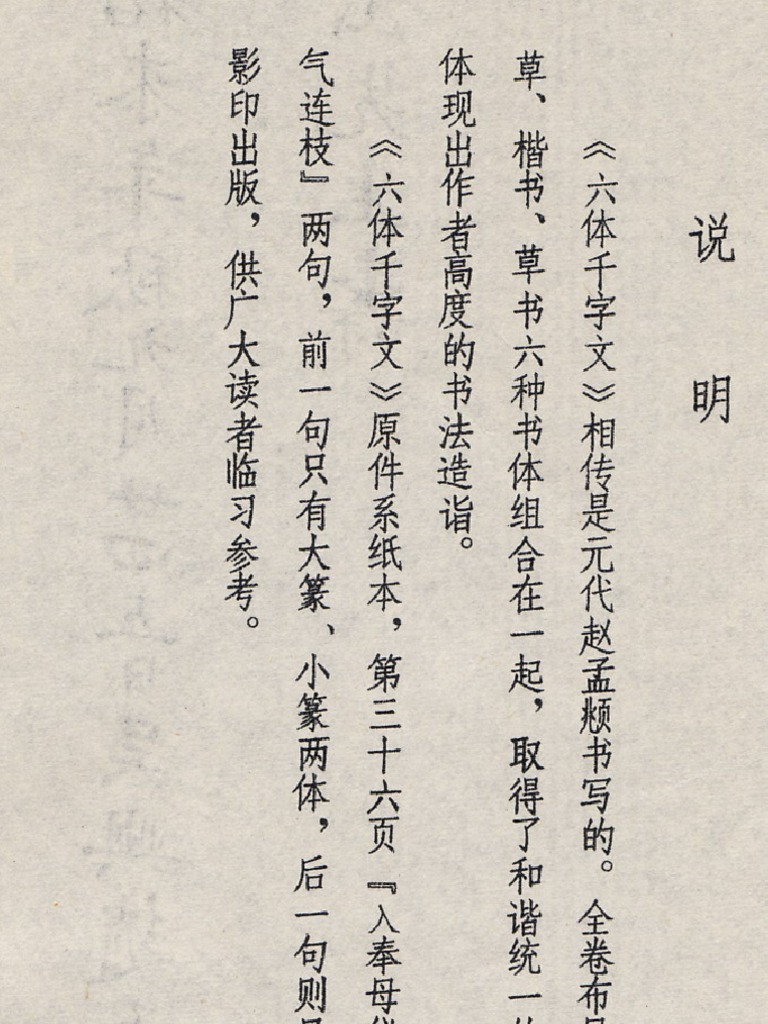 说明
《六体千字文》相传是元代赵孟頫书写的。全卷布
草、楷书、草书六种书体组合在一起，取得了和谐统一
体现出作者高度的书法造诣。
《六体千字文》原件系纸本，第三十六页『入奉母
气连枝』两句，前一句只有大篆、小篆两体，后一句则
影印出版，供广大读者临习参考。